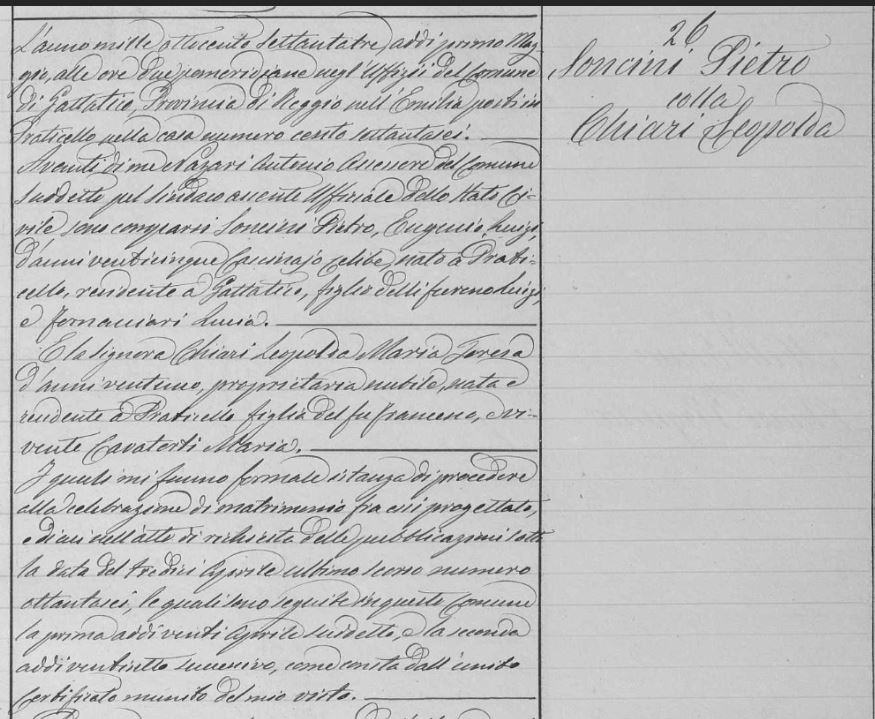 26
Soncini Pietro
colla
Chiari Leopolda
L'anno mille ottocento settantatre, addi primo Mag
gio, alle ore due pomeridiane negl'Uffizii del Comune
di Gattatico, Provincia di Reggio nell'Emilia posti in
Praticello nella casa numero cento settantasei.
Avanti di me Nazari Antonio Assessore del Comune
suddetto pel Sindaco assente Uffiziale dello Stato Ci-
vile sono comparsi Soncini Pietro, Eugenio Luigi,
d'anni venticinque Cascinajo celibe, nato a Prati-
cello, residente a Gattatico, figlio delli furono Luigi,
e Fornaciari Lucia.
E la signora Chiari Leopolda Maria Teresa
d'anni ventuno, proprietaria nubile, nata e
residente a Praticello figlia del fu Francesco, e vi-
vente Cavatorti Maria.
I quali mi fanno formale istanza di procedere
alla celebrazione di matrimonio fra essi progettato,
e di cui nell'atto di richiesta delle pubblicazioni sotto
la data del tredici Aprile ultimo scorso numero
ottantasei, le quali sono seguite in questo Comune
la prima addi venti Aprile suddetto, e la seconda
addi ventisette successivo, come consta dall'unito
Certificato munito del mio visto.